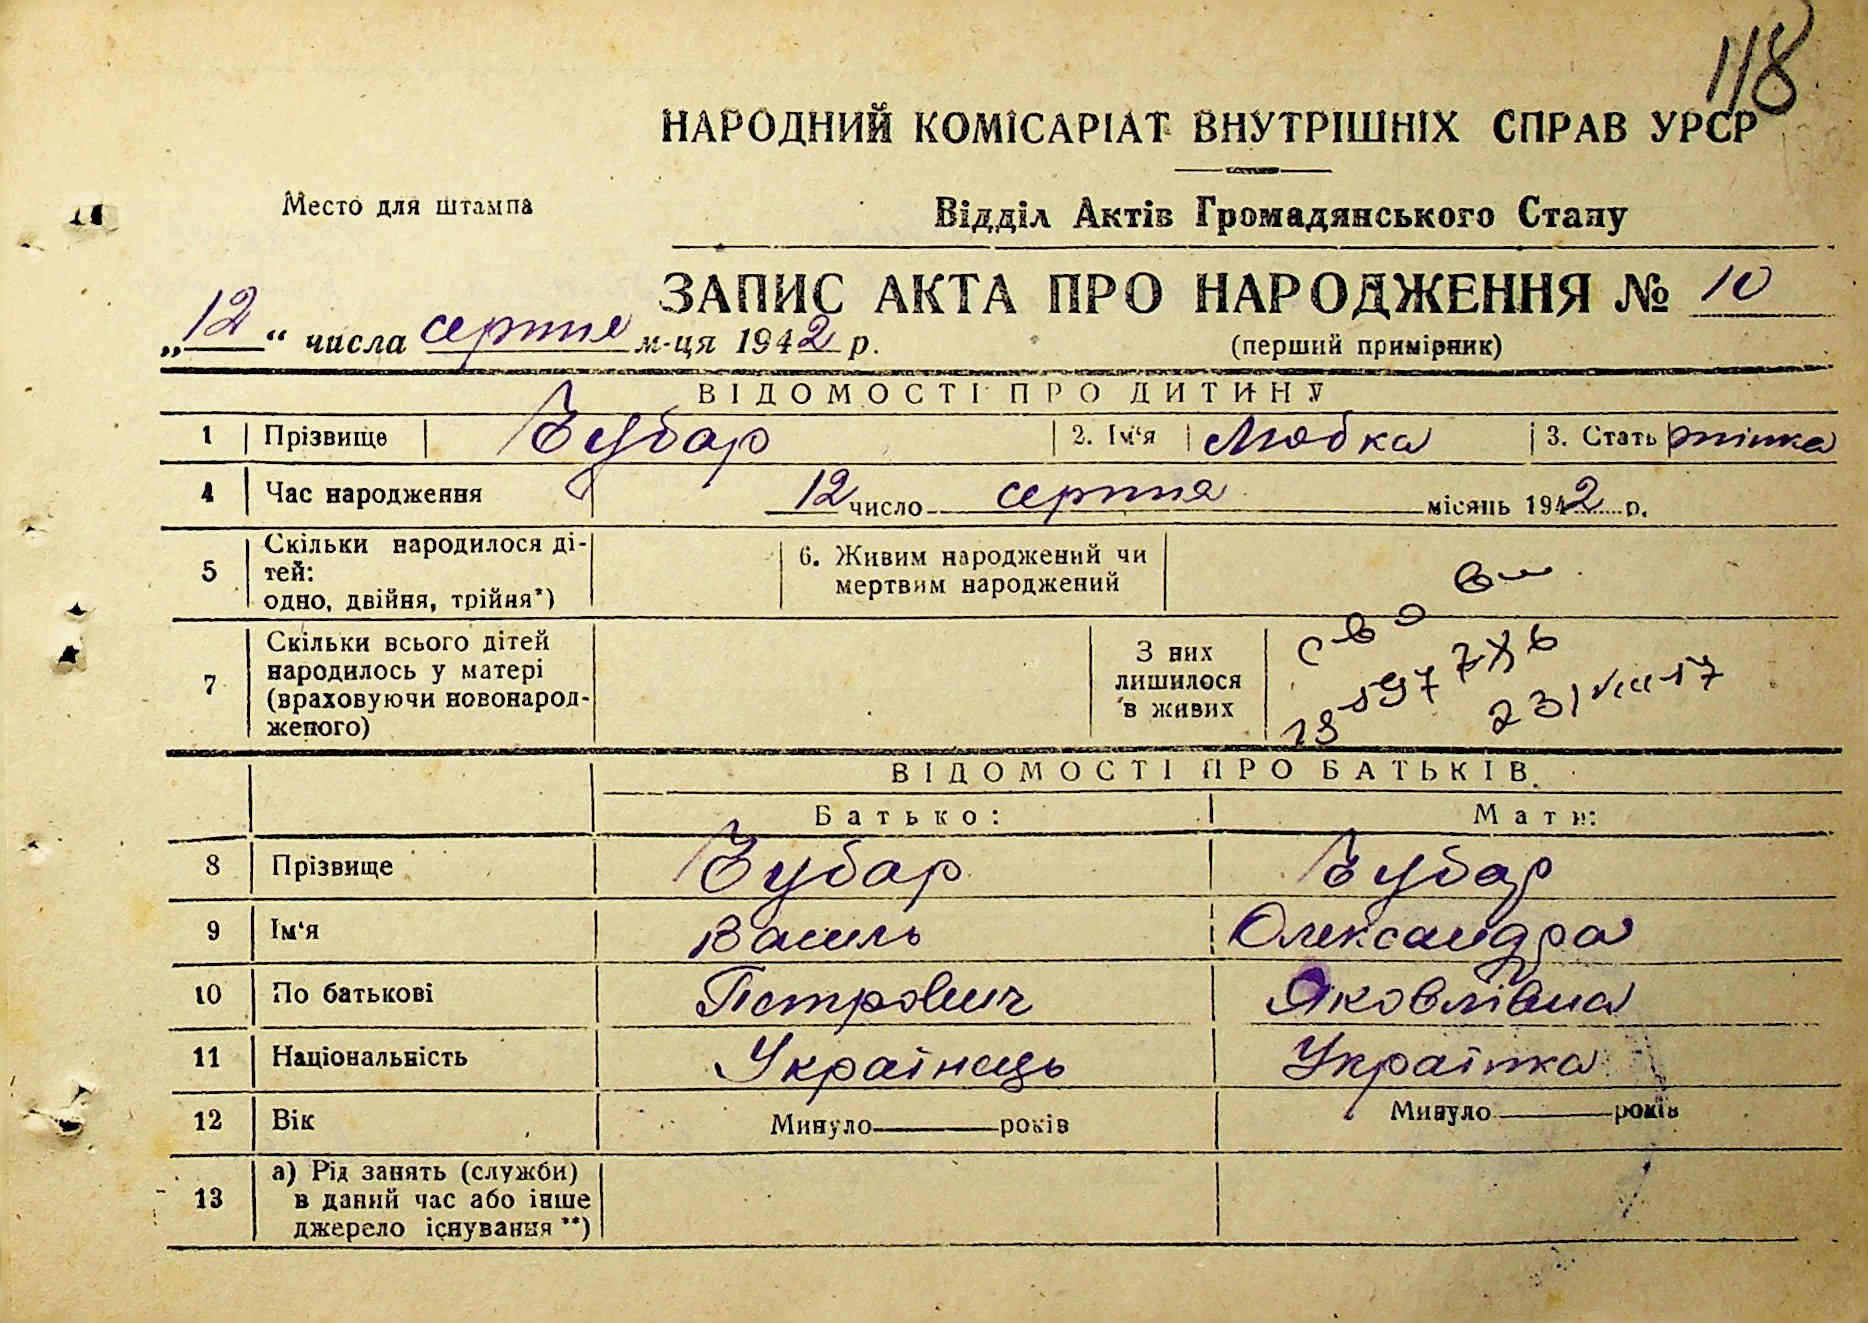 118
НАРОДНИЙ КОМІСАРІАТ ВНУТРІШНІХ СПРАВ УРСР
Место для штампа
Відділ Актів Громадянського Стану
ЗАПИС АКТА ПРО НАРОДЖЕННЯ № 10
„12“ числа серпня м-ця 1942 р.
(перший примірник)
ВІДОМОСТІ ПРО ДИТИНУ
1 Прізвище Зубар 2. Ім'я Любка 3. Стать жінка
4 Час народження 12 число серпня місяць 1942 р.
5 Скільки народилося ді-
тей:
одно, двійня, трійня*)
6. Живим народжений чи
мертвим народжений
7 Скільки всього дітей
народилось у матері
(враховуючи новонарод-
женого)
З них
лишилося
в живих
ВІДОМОСТІ ПРО БАТЬКІВ
Батько: Мати:
8 Прізвище Зубар Зубар
9 Ім'я Василь Олександра
10 По батькові Петрович Яковлівна
11 Національність Українець Українка
12 Вік Минуло років Минуло років
13 а) Рід занять (служби)
в даний час або інше
джерело існування **)